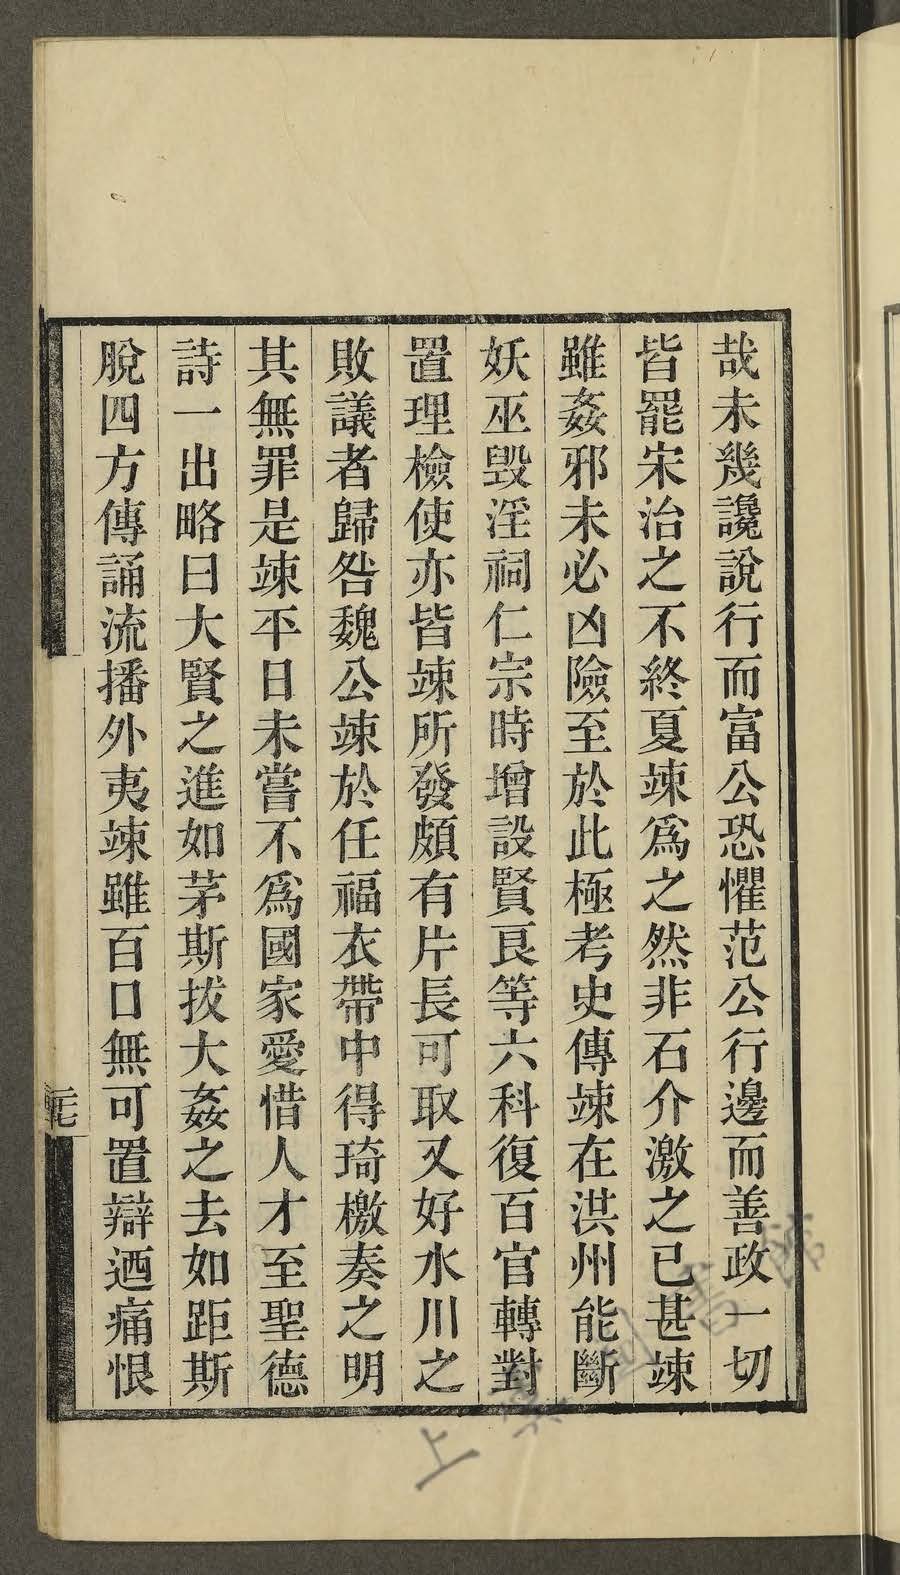 哉未幾讒說行而富公恐懼范公行邊而善政一切
皆罷宋治之不終夏竦爲之然非石介激之已甚竦
雖姦邪未必凶險至於此極考史傳竦在洪州能斷
妖巫毀淫祠仁宗時增設賢良等六科復百官轉對
置理檢使亦皆竦所發頗有片長可取又好水川之
敗議者歸咎魏公竦於任福衣帶中得琦檄奏之明
其無罪是竦平日未嘗不爲國家愛惜人才至聖德
詩一出略曰大賢之進如茅斯拔大姦之去如距斯
脫四方傳誦流播外夷竦雖百口無可置辯迺痛恨
上 圖書館